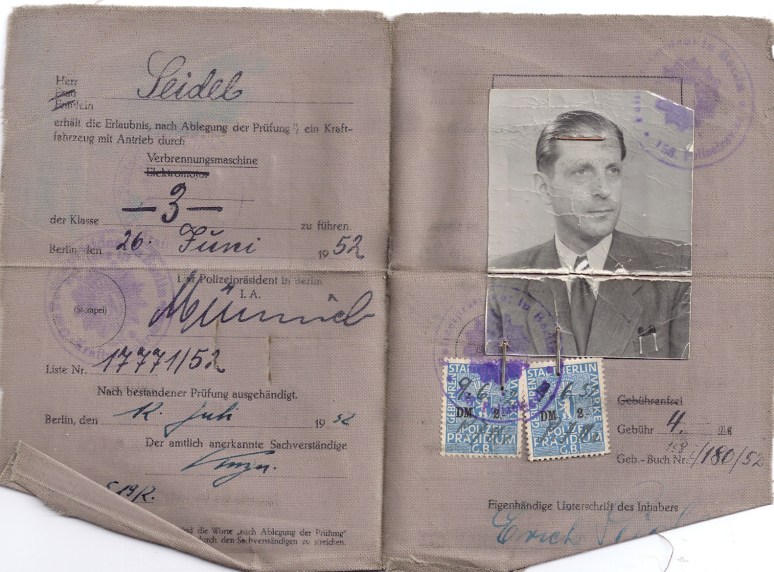 Herr
Frau
Fräulein
Seidel
erhält die Erlaubnis, nach Ablegung der Prüfung *), ein Kraft-
fahrzeug mit Antrieb durch
Verbrennungsmaschine
Elektromotor
der Klasse — 3 — zu führen.
Berlin, den 26. Juni 1952
Der Polizeipräsident in Berlin
I. A.
(Stempel)
Liste Nr. 17771/52
Nach bestandener Prüfung ausgehändigt.
Berlin, den Juli 1952
Der amtlich anerkannte Sachverständige
sind die Worte „nach Ablegung der Prüfung"
durch den Sachverständigen zu streichen.
STADT BERLIN
DM 2
POLIZEI
PRÄSIDIUM
G.B.
STADT BERLIN
DM 2
POLIZEI
PRÄSIDIUM
G.B.
Gebührenfrei
Gebühr 4.
Geb.-Buch Nr. /180/52
Eigenhändige Unterschrift des Inhabers
Erich